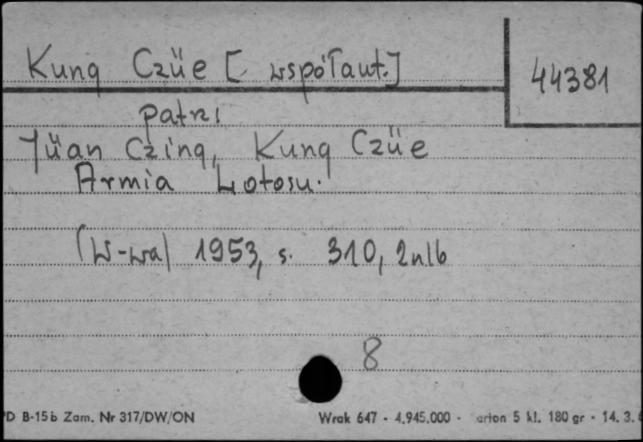 Kung Czüe [ współaut.]
44381
patrz
Jüan Czing, Kung Czüe
Armia Lotosu.
(W-wa) 1953, s. 310, 2nlb
8
D B-15b Zam. Nr 317/DW/ON Wrak 647 - 4.945.000 - arton 5 kl. 180 gr - 14. 3.